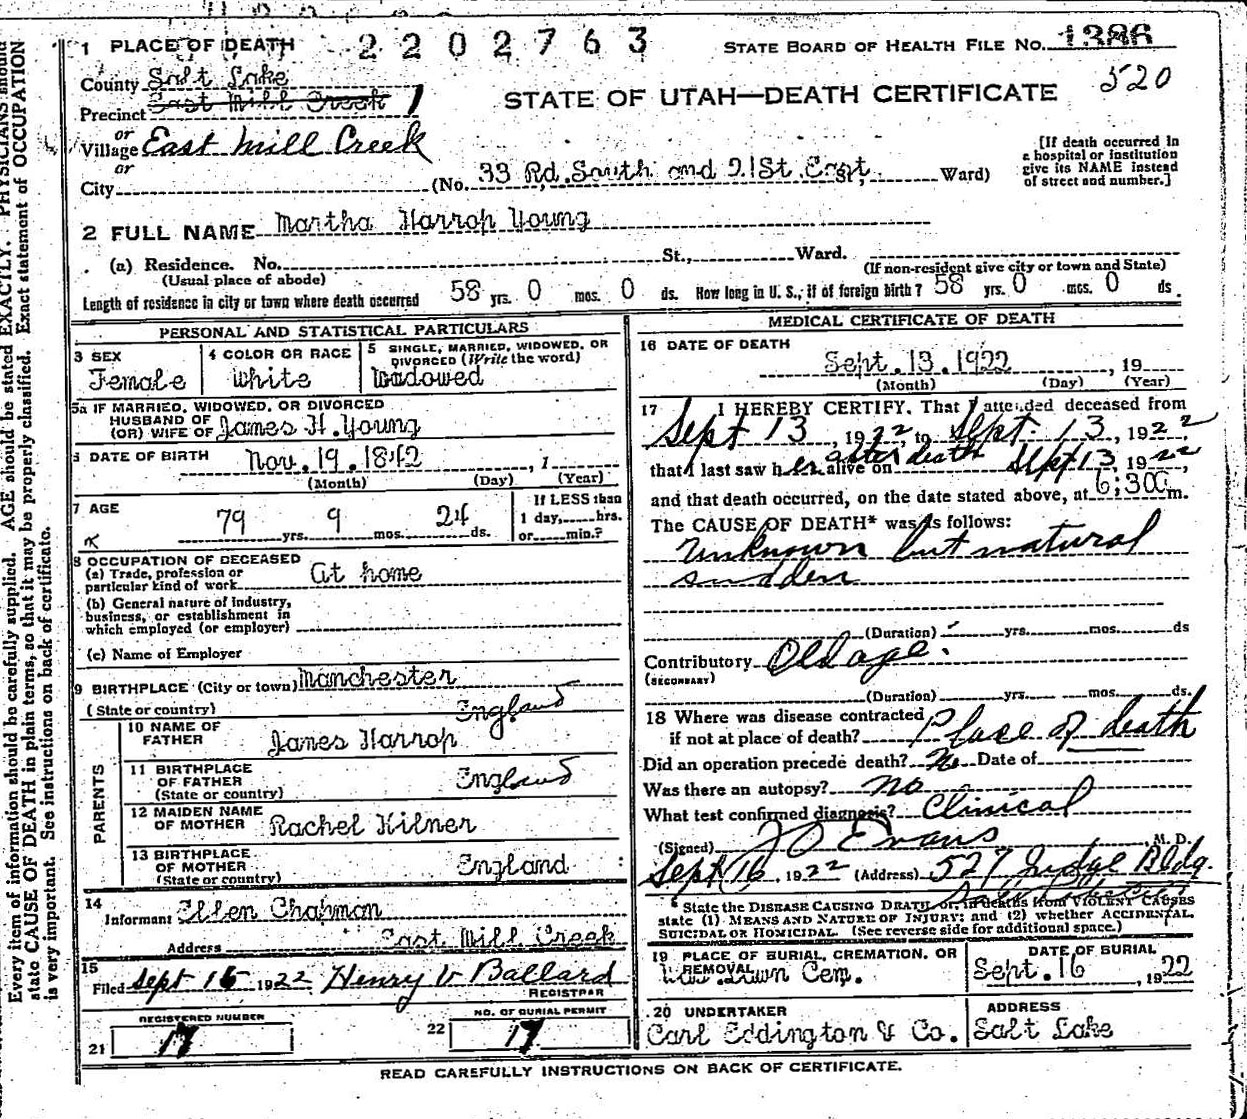 2202763
STATE BOARD OF HEALTH FILE NO. 1386
520
STATE OF UTAH—DEATH CERTIFICATE
1 PLACE OF DEATH
County Salt Lake
Precinct East Mill Creek 1
or
Village East Mill Creek
or
City (No. 33 Rd. South and 21St. East, Ward)
[If death occurred in
a hospital or institution
give its NAME instead
of street and number.]
2 FULL NAME Martha Harrop Young
(a) Residence. No. St., Ward.
(Usual place of abode) (If non-resident give city or town and State)
Length of residence in city or town where death occurred 58 yrs. 0 mos. 0 ds. How long in U. S., if of foreign birth? 58 yrs. 0 mos. 0 ds.
PERSONAL AND STATISTICAL PARTICULARS
3 SEX
Female
4 COLOR OR RACE
White
5 SINGLE, MARRIED, WIDOWED, OR
DIVORCED (Write the word)
Widowed
5a IF MARRIED, WIDOWED, OR DIVORCED
HUSBAND OF
(OR) WIFE OF James H. Young
6 DATE OF BIRTH Nov. 19. 1842, 1
(Month) (Day) (Year)
7 AGE
79 yrs. 9 mos. 24 ds.
If LESS than
1 day, hrs.
or min.?
8 OCCUPATION OF DECEASED
(a) Trade, profession or
particular kind of work At home
(b) General nature of industry,
business, or establishment in
which employed (or employer)
(c) Name of Employer
9 BIRTHPLACE (City or town) Manchester
(State or country) England
PARENTS
10 NAME OF
FATHER James Harrop
11 BIRTHPLACE
OF FATHER England
(State or country)
12 MAIDEN NAME
OF MOTHER Rachel Kilner
13 BIRTHPLACE
OF MOTHER England
(State or country)
14
Informant Ellen Chapman
Address East Mill Creek
15
Filed Sept 16 1922 Henry V Ballard
REGISTRAR
REGISTERED NUMBER
21 17
NO. OF BURIAL PERMIT
22 17
MEDICAL CERTIFICATE OF DEATH
16 DATE OF DEATH
Sept. 13. 1922, 19
(Month) (Day) (Year)
17 I HEREBY CERTIFY, That I attended deceased from
Sept 13, 1922, to Sept 13, 1922,
that I last saw her alive on after death Sept 13, 1922,
and that death occurred, on the date stated above, at 6:30 a m.
The CAUSE OF DEATH* was as follows:
Unknown but natural
sudden
(Duration) yrs. mos. ds
Contributory Old age.
(SECONDARY)
(Duration) yrs. mos. ds.
18 Where was disease contracted
if not at place of death? Place of death
Did an operation precede death? No Date of
Was there an autopsy? no
What test confirmed diagnosis? Clinical
(Signed) J O Evans, M. D.
Sept 16, 1922 (Address) 527 Judge Bldg.
*State the DISEASE CAUSING DEATH, or in deaths from VIOLENT CAUSES
state (1) MEANS AND NATURE OF INJURY; and (2) whether ACCIDENTAL,
SUICIDAL OR HOMICIDAL. (See reverse side for additional space.)
19 PLACE OF BURIAL, CREMATION, OR
REMOVAL
Lawn Cem.
DATE OF BURIAL
Sept. 16, 1922
20 UNDERTAKER
Carl Eddington & Co.
ADDRESS
Salt Lake
READ CAREFULLY INSTRUCTIONS ON BACK OF CERTIFICATE.
Every item of information should be carefully supplied. AGE should be stated EXACTLY. PHYSICIANS should
state CAUSE OF DEATH in plain terms, so that it may be properly classified. Exact statement of OCCUPATION
is very important. See instructions on back of certificate.